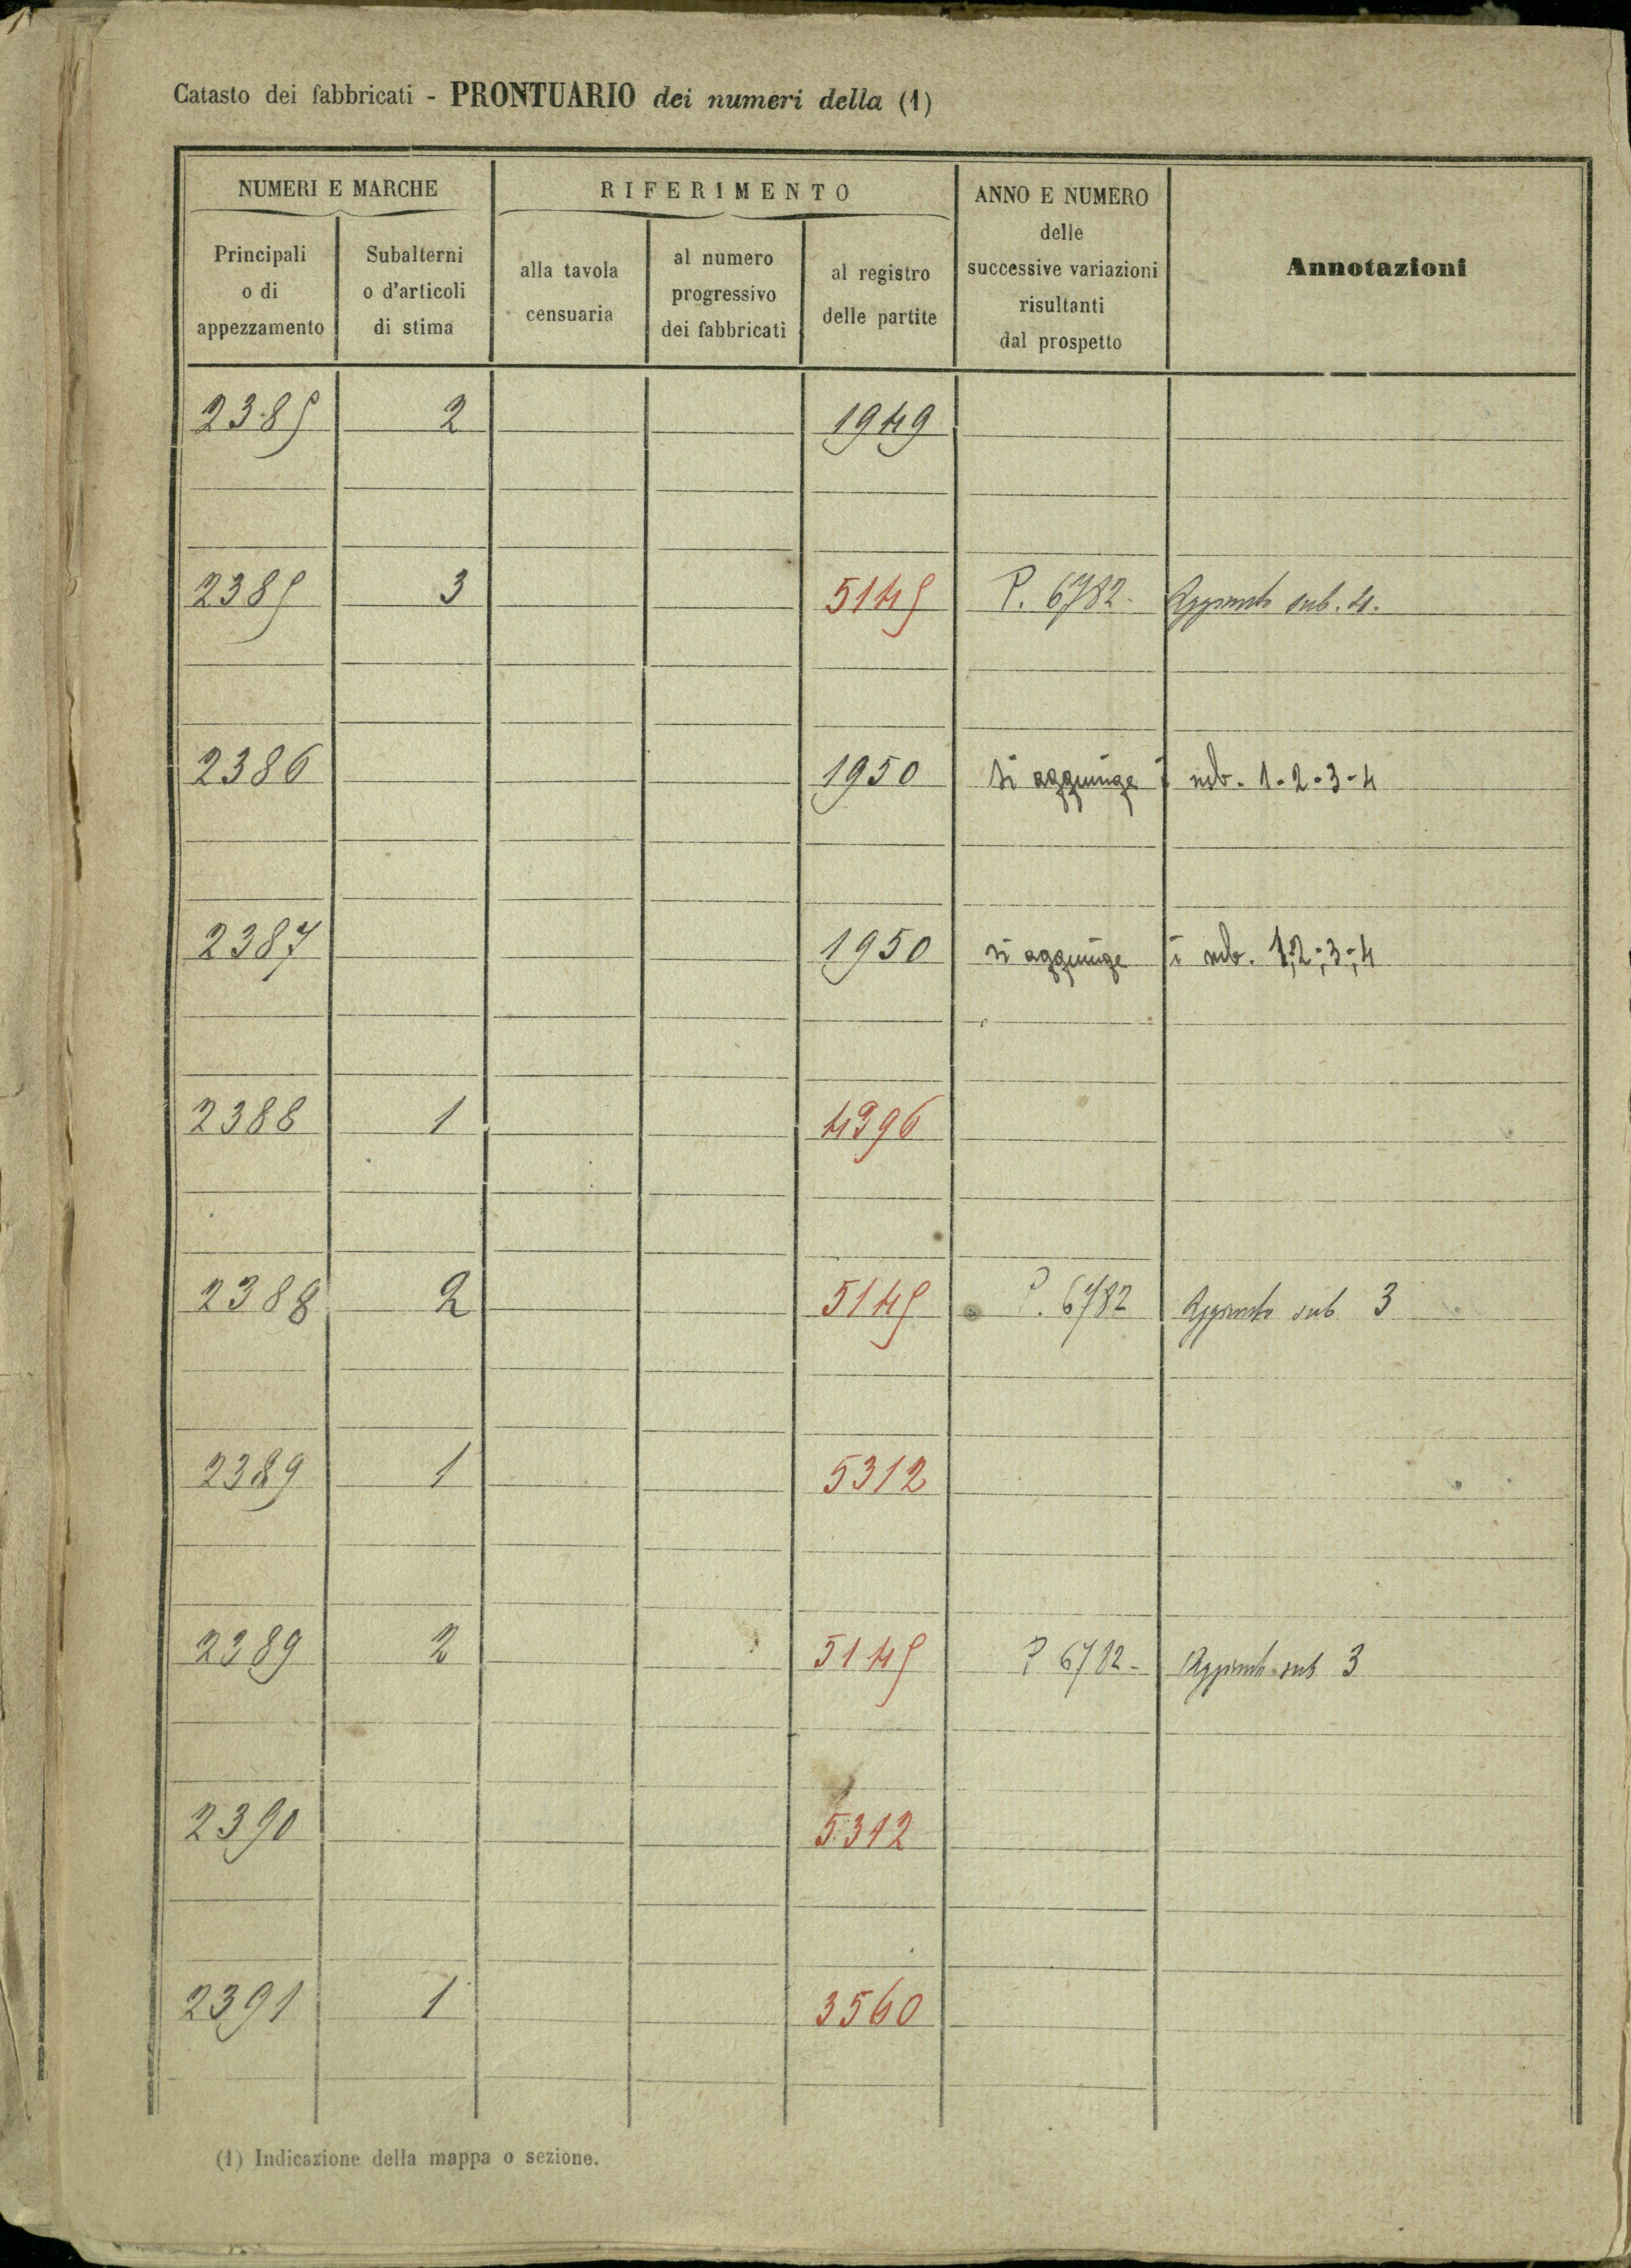 Catasto dei fabbricati - PRONTUARIO dei numeri della (1)
NUMERI E MARCHE
RIFERIMENTO
ANNO E NUMERO
delle
successive variazioni
risultanti
dal prospetto
Annotazioni
Principali
o di
appezzamento
Subalterni
o d'articoli
di stima
alla tavola
censuaria
al numero
progressivo
dei fabbricati
al registro
delle partite
2385 2 1949
2385 3 5145 P. 6782 - Aggiunto sub. 4.
2386 1950 si aggiunge i sub. 1-2-3-4
2387 1950 si aggiunge i sub. 1;2;3;4
2388 1 4396
2388 2 5145 P. 6782 Aggiunto sub 3
2389 1 5312
2389 2 5145 P 6782 - Aggiunto sub 3
2390 5312
2391 1 3560
(1) Indicazione della mappa o sezione.